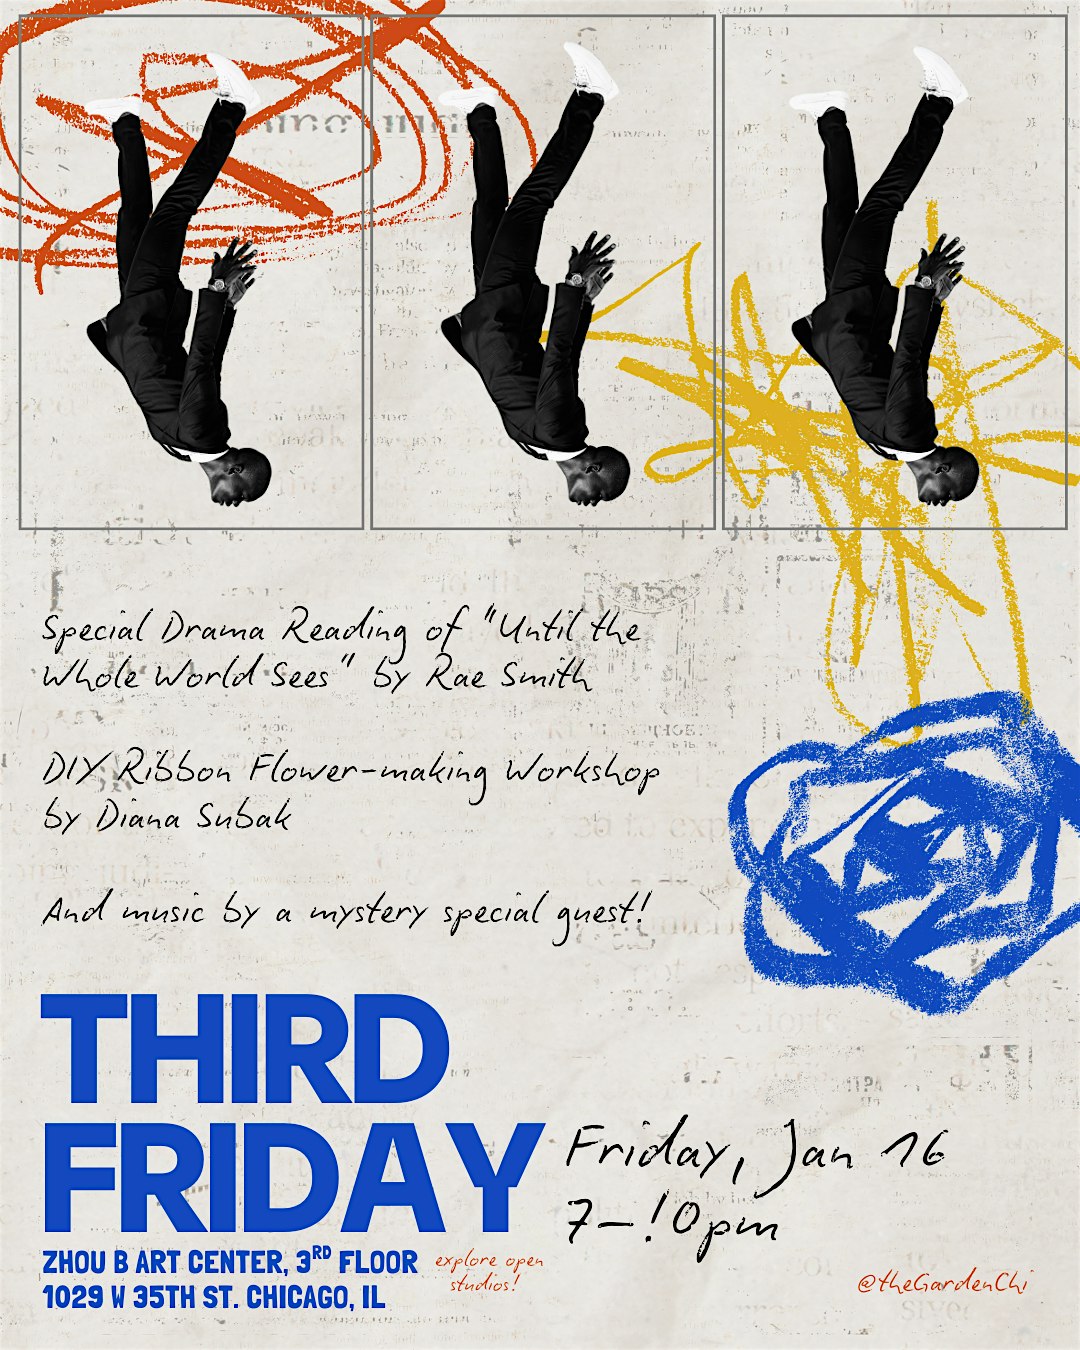 Special Drama Reading of "Until the
Whole World Sees" by Rae Smith
DIY Ribbon Flower-making Workshop
by Diana Subak
And music by a mystery special guest!
THIRD
FRIDAY
Friday, Jan 16
7-!0pm
ZHOU B ART CENTER, 3RD FLOOR
1029 W 35TH ST. CHICAGO, IL
explore open
studios!
@theGardenChi